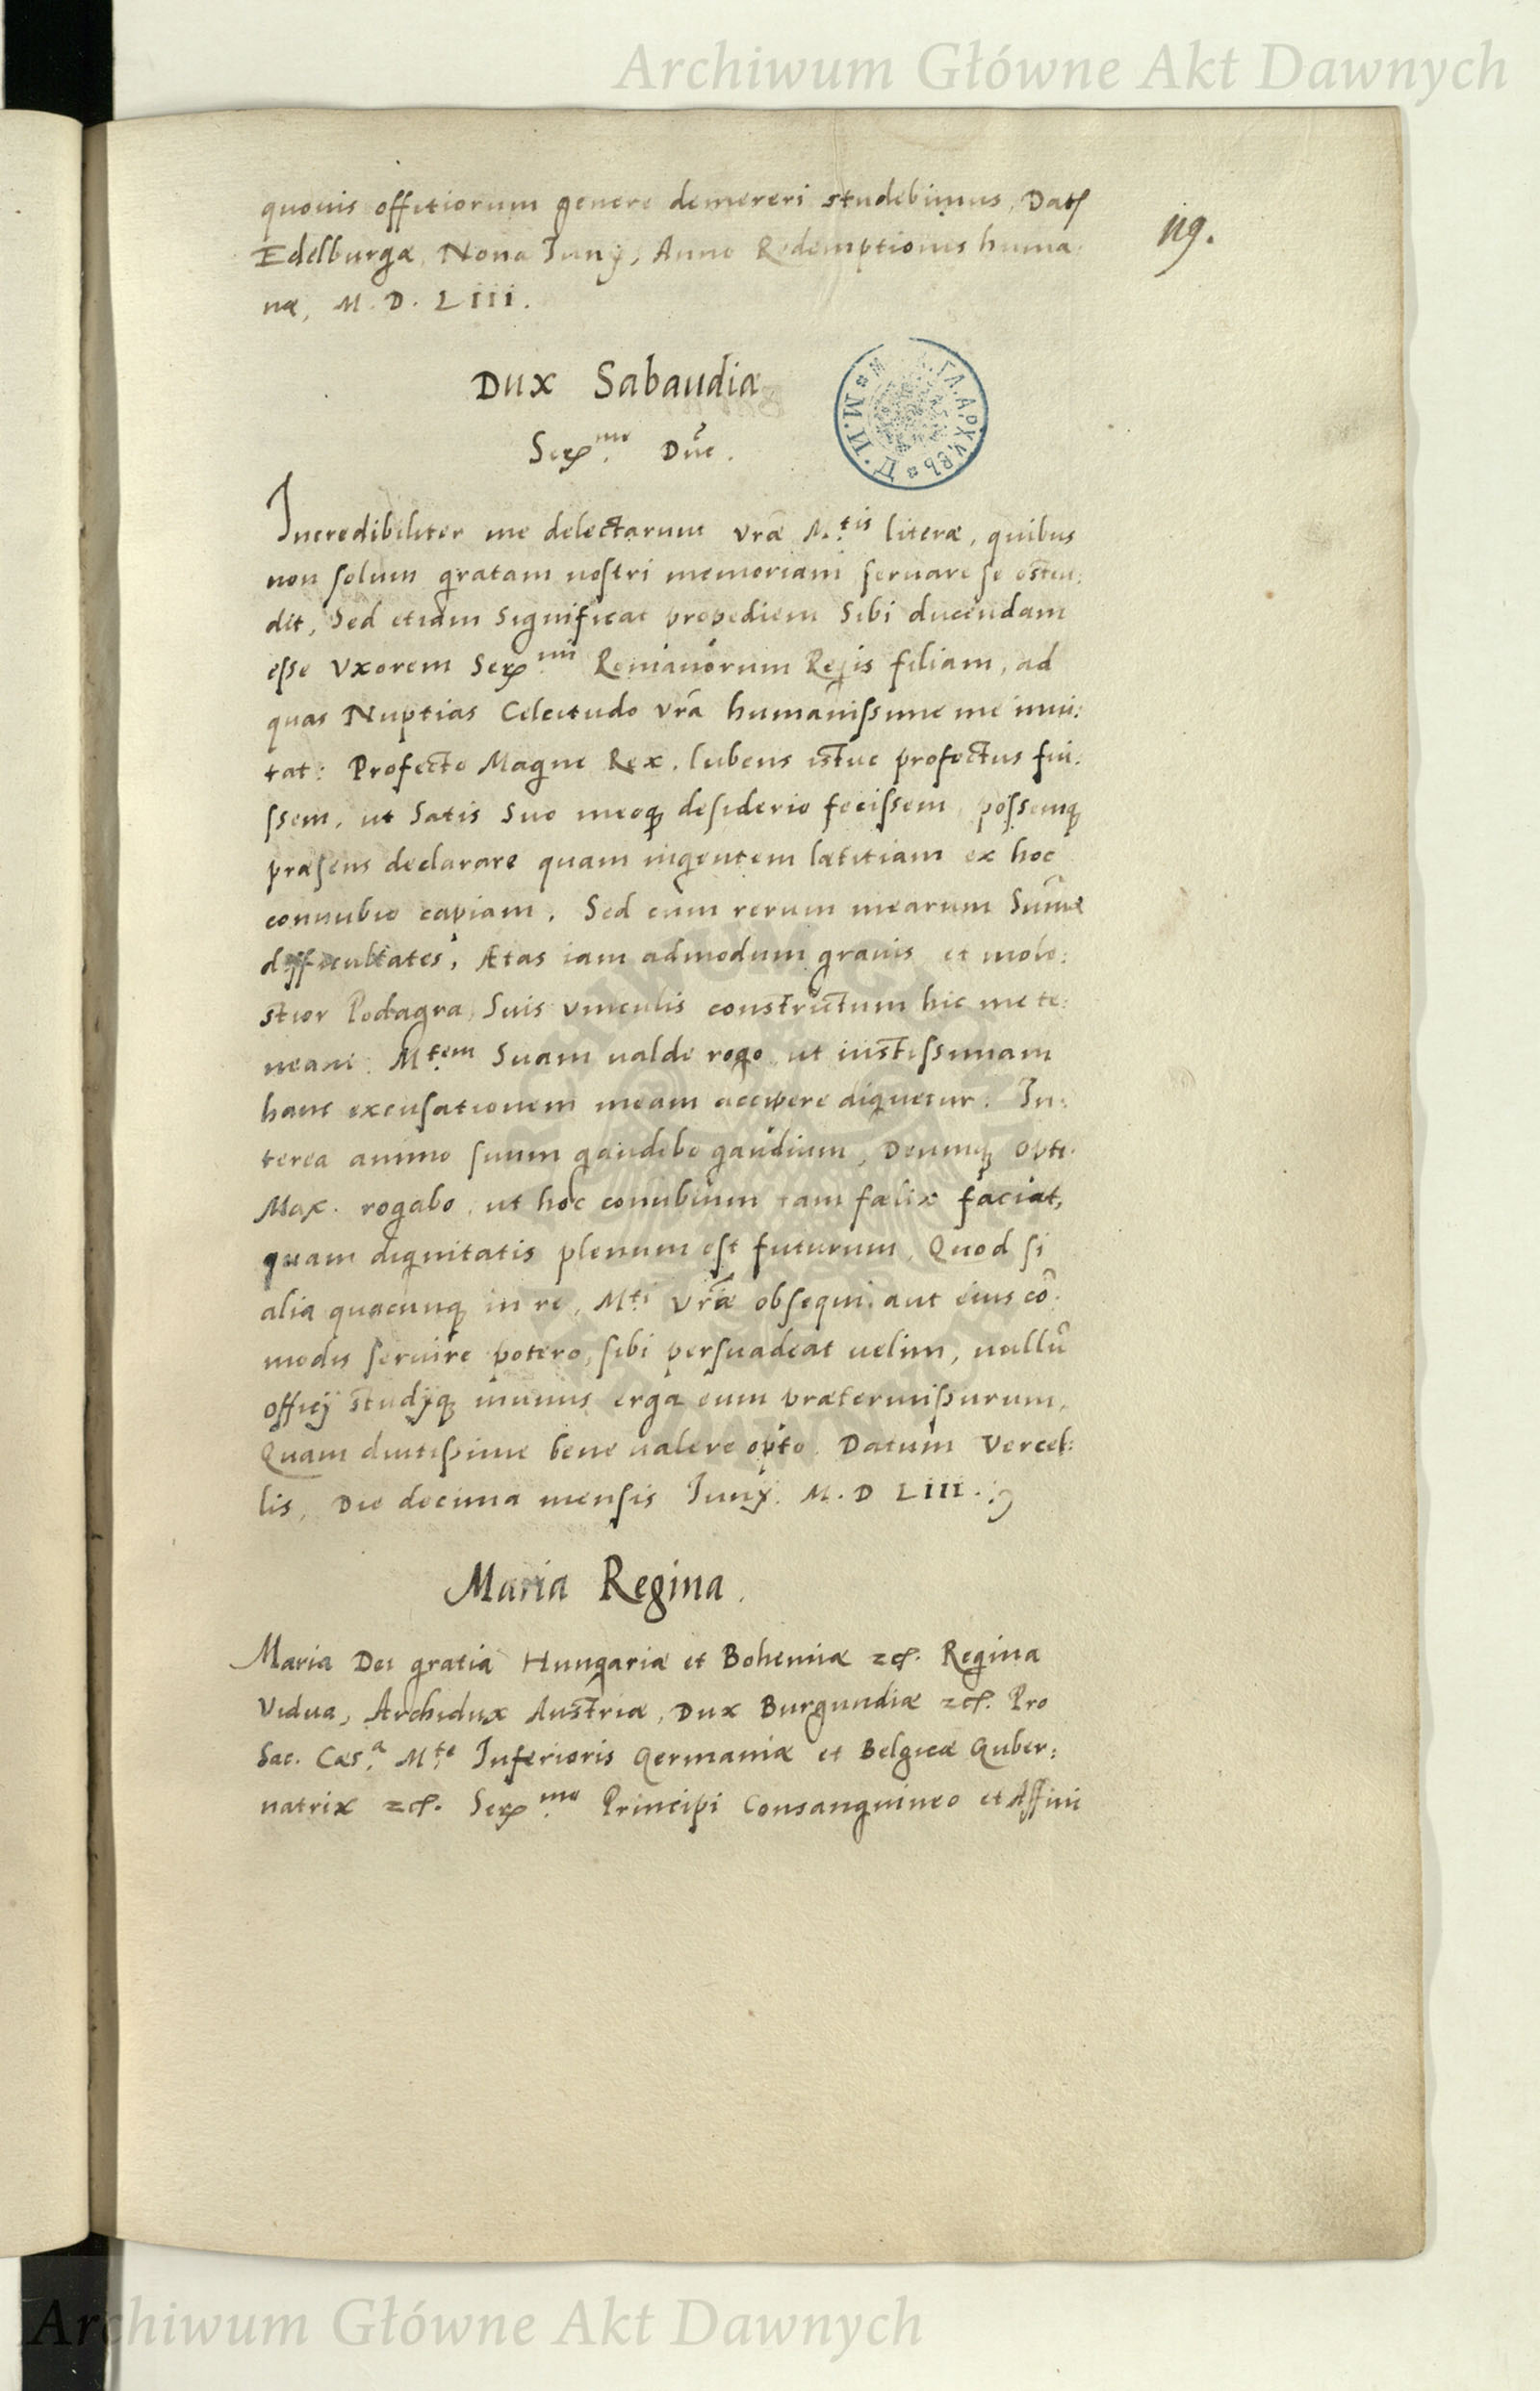 Archiwum Główne Akt Dawnych
119.
quouis offitiorum genere demereri studebimus, Dat
Edelburgæ, Nona Iunÿ, Anno Redemptionis huma:
næ, M. D. LIII.
Dux Sabaudiæ
Ser.mo Dne.
Incredibiliter me delectarunt vræ M.tis literæ, quibus
non solum gratam nostri memoriam seruare se osten:
dit, Sed etiam Significat propediem Sibi ducendam
esse Vxorem Ser.mi Romanorum Regis filiam, ad
quas Nuptias Celcitudo vrā humanissime me inui:
tat: Profecto Magne Rex, lubens istuc profectus fui:
ssem, ut Satis Suo meoq desiderio fecissem, possemq
præsens declarare quam ingentem lætitiam ex hoc
connubio capiam. Sed cum rerum mearum Sum̄e
difficultates, Ætas iam admodum grauis et mole:
stior Podagra, Suis vinculis constrictum hic me te:
neant. M.tem Suam ualde rogo ut iustissimam
hanc excusationem meam accipere dignetur. In:
terea animo suum gaudebo gaudium, Deumq Opti.
Max. rogabo, ut hoc conubium tam fælix faciat,
quam dignitatis plenum est futurum. Quod si
alia quacunq in re, M.ti vræ obsequi, aut eius cō:
modis seruire potero, sibi persuadeat uelim, nullū
officÿ studÿq munus erga eum prætermissurum.
Quam diutissime bene ualere opto. Datum Vercel:
lis, Die decima mensis Iunÿ. M. D LIII.
Maria Regina.
Maria Dei gratia Hungariæ et Bohemiæ zc. Regina
Vidua, Archidux Austriæ, Dux Burgundiæ zc. Pro
Sac. Cæs.a M.te Inferioris Germaniæ et Belgicæ Guber:
natrix zc. Ser.mo Principi Consanguineo et Affini
Archiwum Główne Akt Dawnych